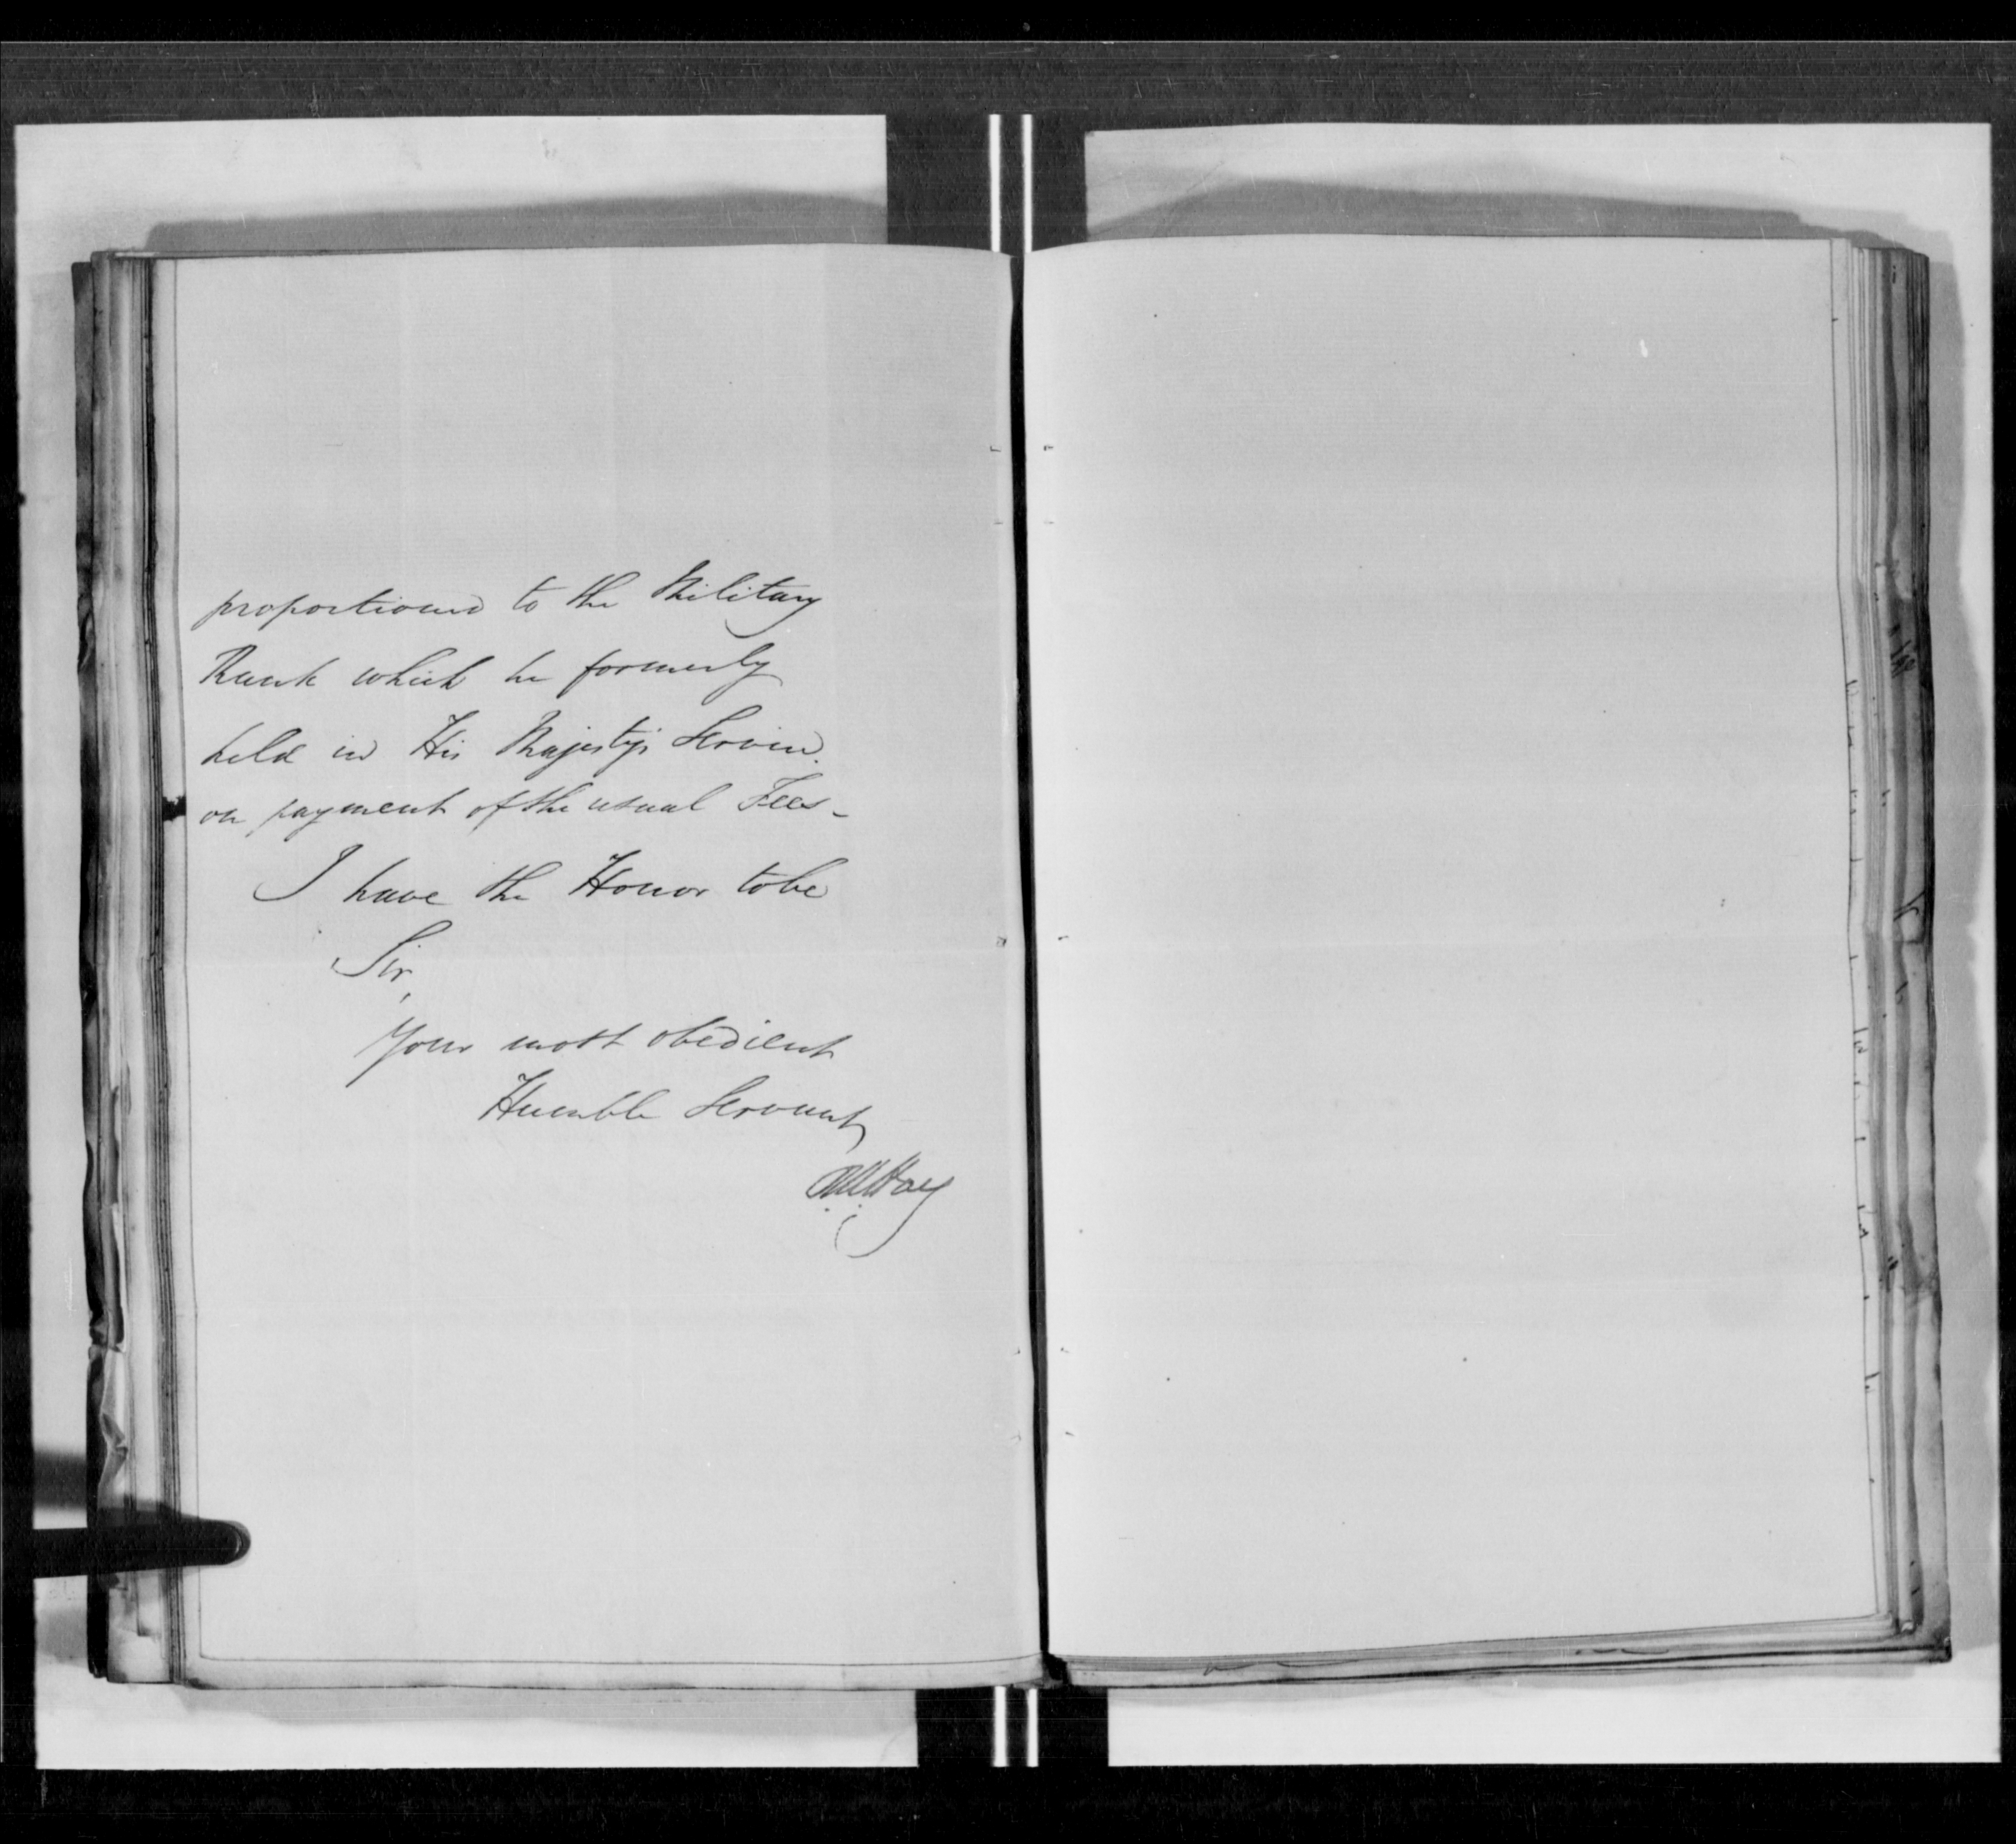 proportioned to the Military
Rank which he formerly
held in His Majesty's Service.
on payment of the usual Fees -
I have the Honor to be
Sir,
Your most obedient
Humble Servant
RW Hay